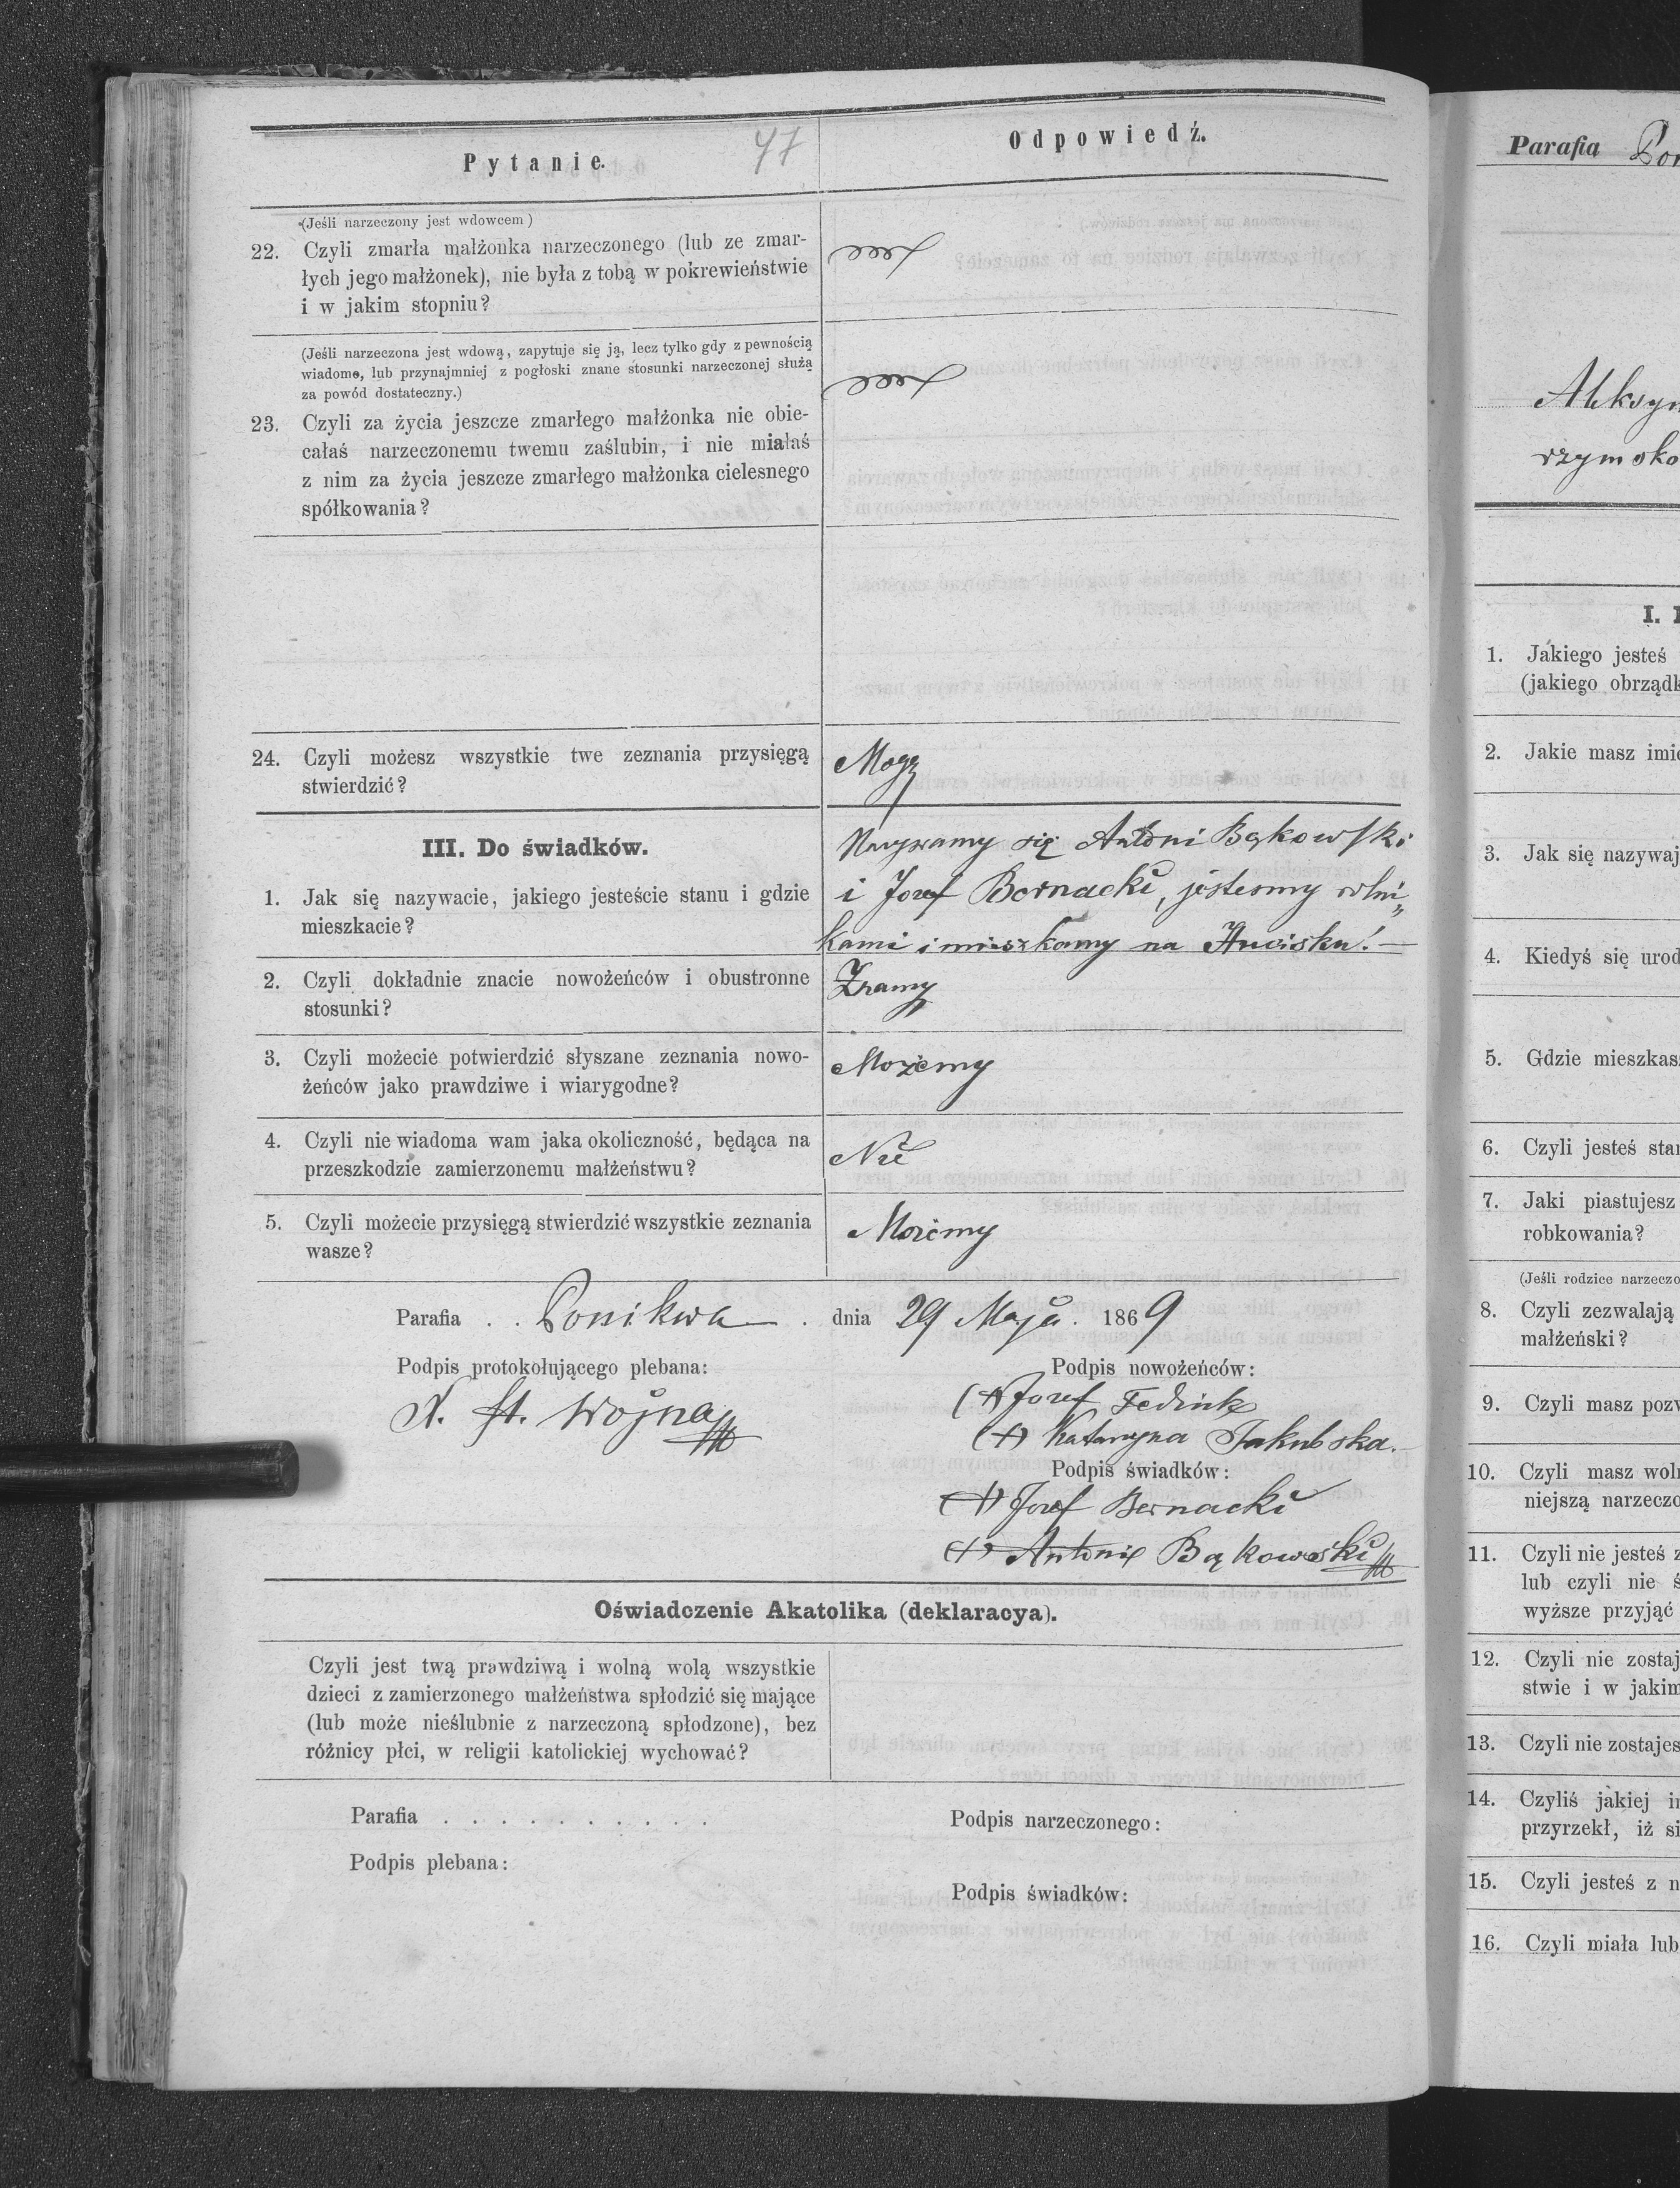 Pytanie. 47 Odpowiedź.
(Jeśli narzeczony jest wdowcem)
22. Czyli zmarła małżonka narzeczonego (lub ze zmar-
łych jego małżonek), nie była z tobą w pokrewieństwie
i w jakim stopniu?
(Jeśli narzeczona jest wdową, zapytuje się ją, lecz tylko gdy z pewnością
wiadome, lub przynajmniej z pogłoski znane stosunki narzeczonej służą
za powód dostateczny.)
23. Czyli za życia jeszcze zmarłego małżonka nie obie-
całaś narzeczonemu twemu zaślubin, i nie miałaś
z nim za życia jeszcze zmarłego małżonka cielesnego
spółkowania?
24. Czyli możesz wszystkie twe zeznania przysięgą
stwierdzić?
Mogę
III. Do świadków.
1. Jak się nazywacie, jakiego jesteście stanu i gdzie
mieszkacie?
Nazywamy się Antoni Bąkowski
i Jozef Bernacki, jestesmy rolni„
kami i mieszkamy na Hucisku! —
2. Czyli dokładnie znacie nowożeńców i obustronne
stosunki?
Znamy
3. Czyli możecie potwierdzić słyszane zeznania nowo-
żeńców jako prawdziwe i wiarygodne?
Możemy
4. Czyli nie wiadoma wam jaka okoliczność, będąca na
przeszkodzie zamierzonemu małżeństwu?
Nie
5. Czyli możecie przysięgą stwierdzić wszystkie zeznania
wasze?
Możemy
Parafia . . Ponikwa . dnia 29 Maja . 1869
Podpis protokołującego plebana:
X. St. Wojna
Podpis nowożeńców:
(+) Jozef
(+) Katarzyna Jakubska.
Podpis świadków:
(+) Jozef Bernacki
(+) Antoni Bąkowski
Oświadczenie Akatolika (deklaracya).
Czyli jest twą prawdziwą i wolną wolą wszystkie
dzieci z zamierzonego małżeństwa spłodzić się mające
(lub może nieślubnie z narzeczoną spłodzone), bez
różnicy płci, w religii katolickiej wychować?
Parafia . . . . . . . . . .
Podpis narzeczonego:
Podpis plebana:
Podpis świadków:
Parafia Pon
rzymsko
I.
1. Jakiego jesteś
(jakiego obrządk
2. Jakie masz imię
3. Jak się nazywaj
4. Kiedyś się urod
5. Gdzie mieszkas
6. Czyli jesteś stan
7. Jaki piastujesz
robkowania?
(Jeśli rodzice narzeczo
8. Czyli zezwalają
małżeński?
9. Czyli masz pozw
10. Czyli masz woln
niejszą narzeczo
11. Czyli nie jesteś z
lub czyli nie ś
wyższe przyjąć
12. Czyli nie zostaj
stwie i w jakim
13. Czyli nie zostajes
14. Czyliś jakiej in
przyrzekł, iż si
15. Czyli jesteś z n
16. Czyli miała lub